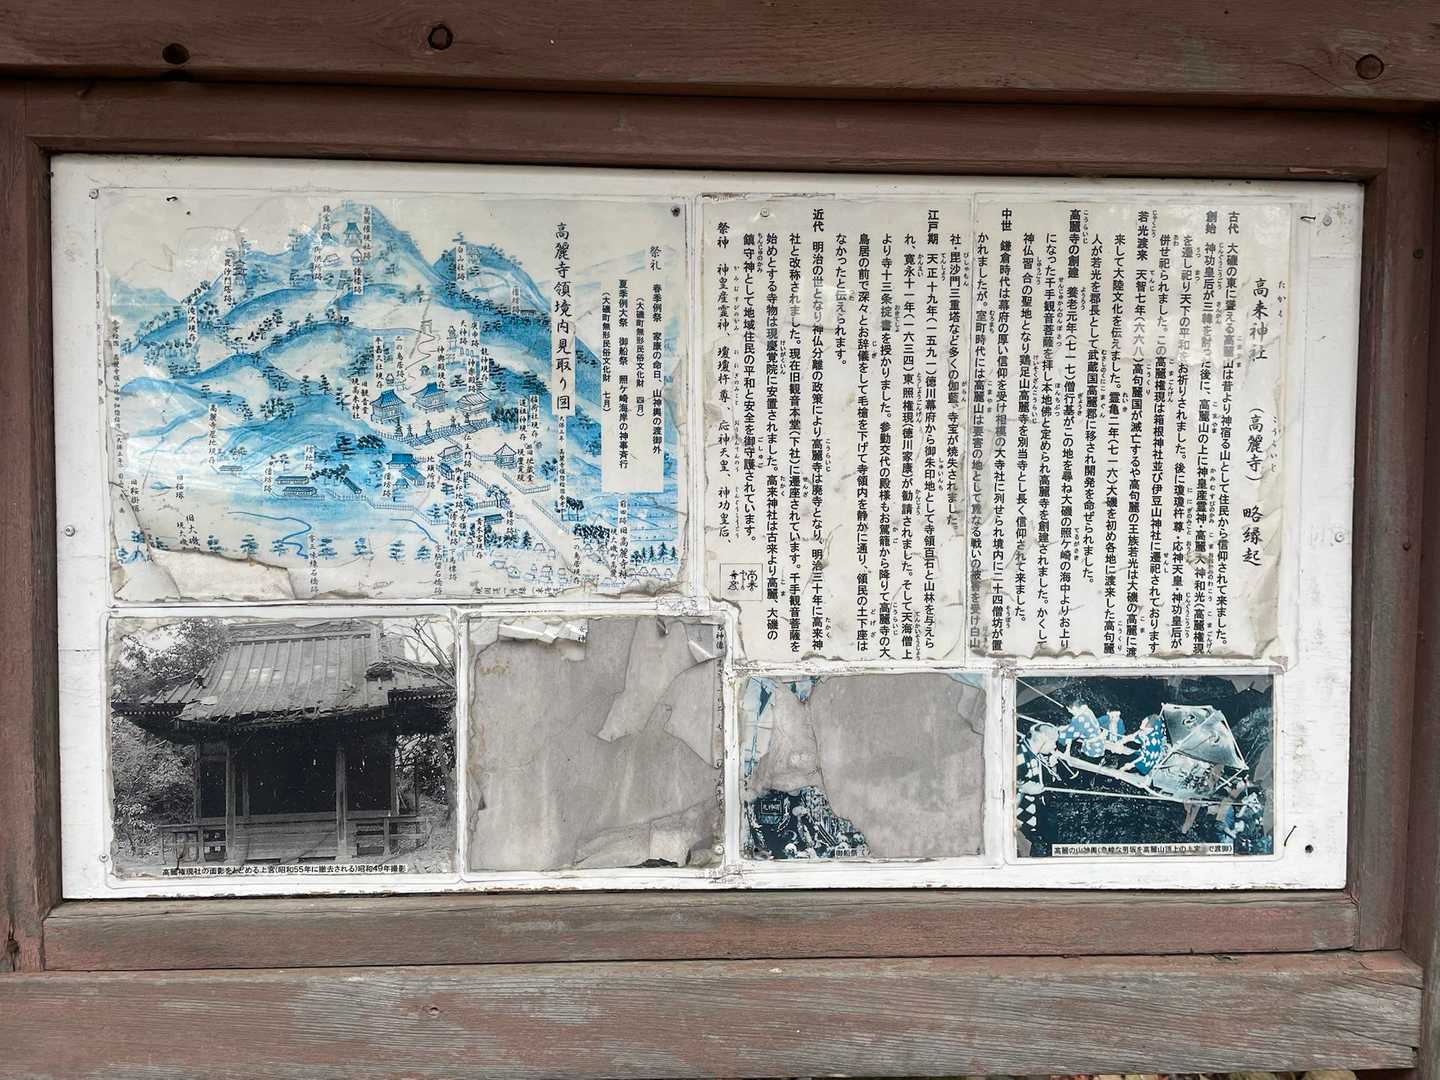 高来神社 (高麗寺) 略縁起
古代 大磯の東に聳える高麗山は昔より神宿る山として住民から信仰されて来ました。
創始 神功皇后が三韓を討った後に、高麗山の上に神皇産霊神・高麗大神和光(高麗権現
を遷し祀り天下の平和をお祈りされました。後に瓊瓊杵尊・応神天皇・神功皇后が
併せ祀られました。この高麗権現は箱根神社並び伊豆山神社に遷祀されております
若光渡来 天智七年(六六八)高句麗国が滅亡するや高句麗の王族若光は大磯の高麗に渡
来して大陸文化を伝えました。霊亀二年(七一六)大磯を初め各地に渡来した高句麗
人が若光を郡長として武蔵国高麗郡に移され開発を命ぜられました。
高麗寺の創建 養老元年(七一七)僧行基がこの地を尋ね大磯の照ケ崎の海中よりお上り
になった千手観音菩薩を拝し本地佛と定められ高麗寺を創建されました。かくして
神仏習合の聖地となり鶏足山高麗寺を別当寺とし長く信仰されて来ました。
中世 鎌倉時代は幕府の厚い信仰を受け相模の大寺社に列せられ境内に二十四僧坊が置
かれましたが。室町時代には高麗山は要害の地として重なる戦いの被害を受け白山
社・毘沙門三重塔など多くの伽藍、寺宝が焼失されました。
江戸期 天正十九年(一五九一)徳川幕府から御朱印地として寺領百石と山林を与えら
れ、寛永十一年(一六三四)東照権現(徳川家康)が勧請されました。そして天海僧上
より寺十三条掟書を授かりました。参勤交代の殿様もお駕籠から降りて高麗寺の大
鳥居の前で深々とお辞儀をして毛槍を下げて寺領内を静かに通り、領民の土下座は
なかったと伝えられます。
近代 明治の世となり神仏分離の政策により高麗寺は廃寺となり、明治三十年に高来神
社と改称されました。現在旧観音本堂(下社)に遷座されています。千手観音菩薩を
始めとする寺物は現慶覚院に安置されました。高来神社は古来より高麗、大磯の
鎮守神として地域住民の平和と安全を御守護されています。
祭神 神皇産霊神、瓊瓊杵尊、応神天皇、神功皇后、
祭礼 春季例祭 家康の命日、山神輿の渡御外
(大磯町無形民俗文化財 四月)
夏季例大祭 御船祭 照ケ崎海岸の神事斉行
(大磯町無形民俗文化財 七月)
高麗寺領境内見取り図
高麗権現社跡
御供所跡
鐘楼跡
毘沙門塔跡
白山社跡
滝沢坂跡
僧坊跡
二の鳥居跡
神輿殿現存
旧観音堂
現高来神社
龍神現存
仁王門跡
地蔵堂
現慶覚院
御朱印地跡
高麗寺墓地跡
旧桜塚
旧大磯
一の鳥居現存
高麗権現社の面影をとどめる上宮(昭和55年に撤去される)昭和49年撮影
御船祭
高麗の山神輿(急峻な男坂を高麗山頂上の上宮まで渡御)